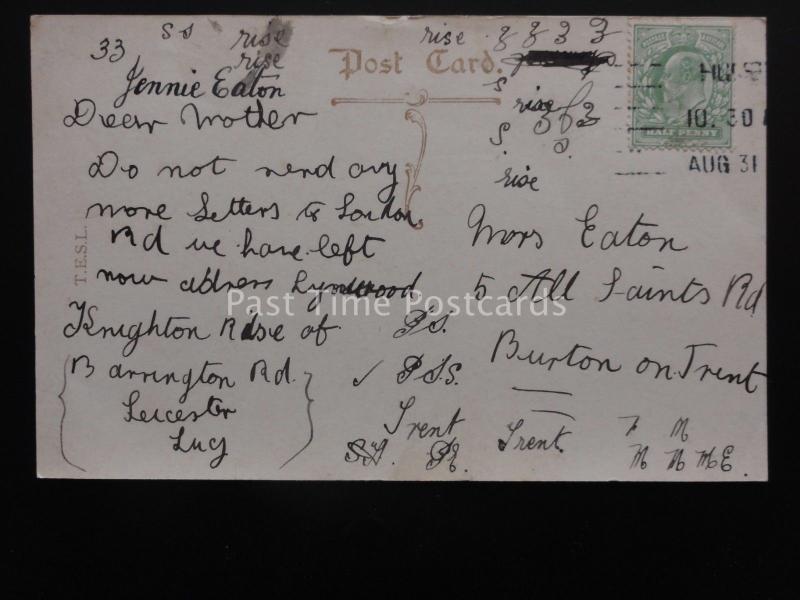 33
ss
rise
rise
rise
Post Card.
Jennie Eaton
Dear Mother
Do not send any
more Letters to London
Rd we have left
now address Lyndwood
Knighton Rise of
Barrington Rd
Leicester
Lucy
T.E.S.L.
rise
rise
HALF PENNY
10.30
AUG 31
Mrs Eaton
5 All Saints Rd
Burton on Trent
Trent
Trent.
Past Time Postcards